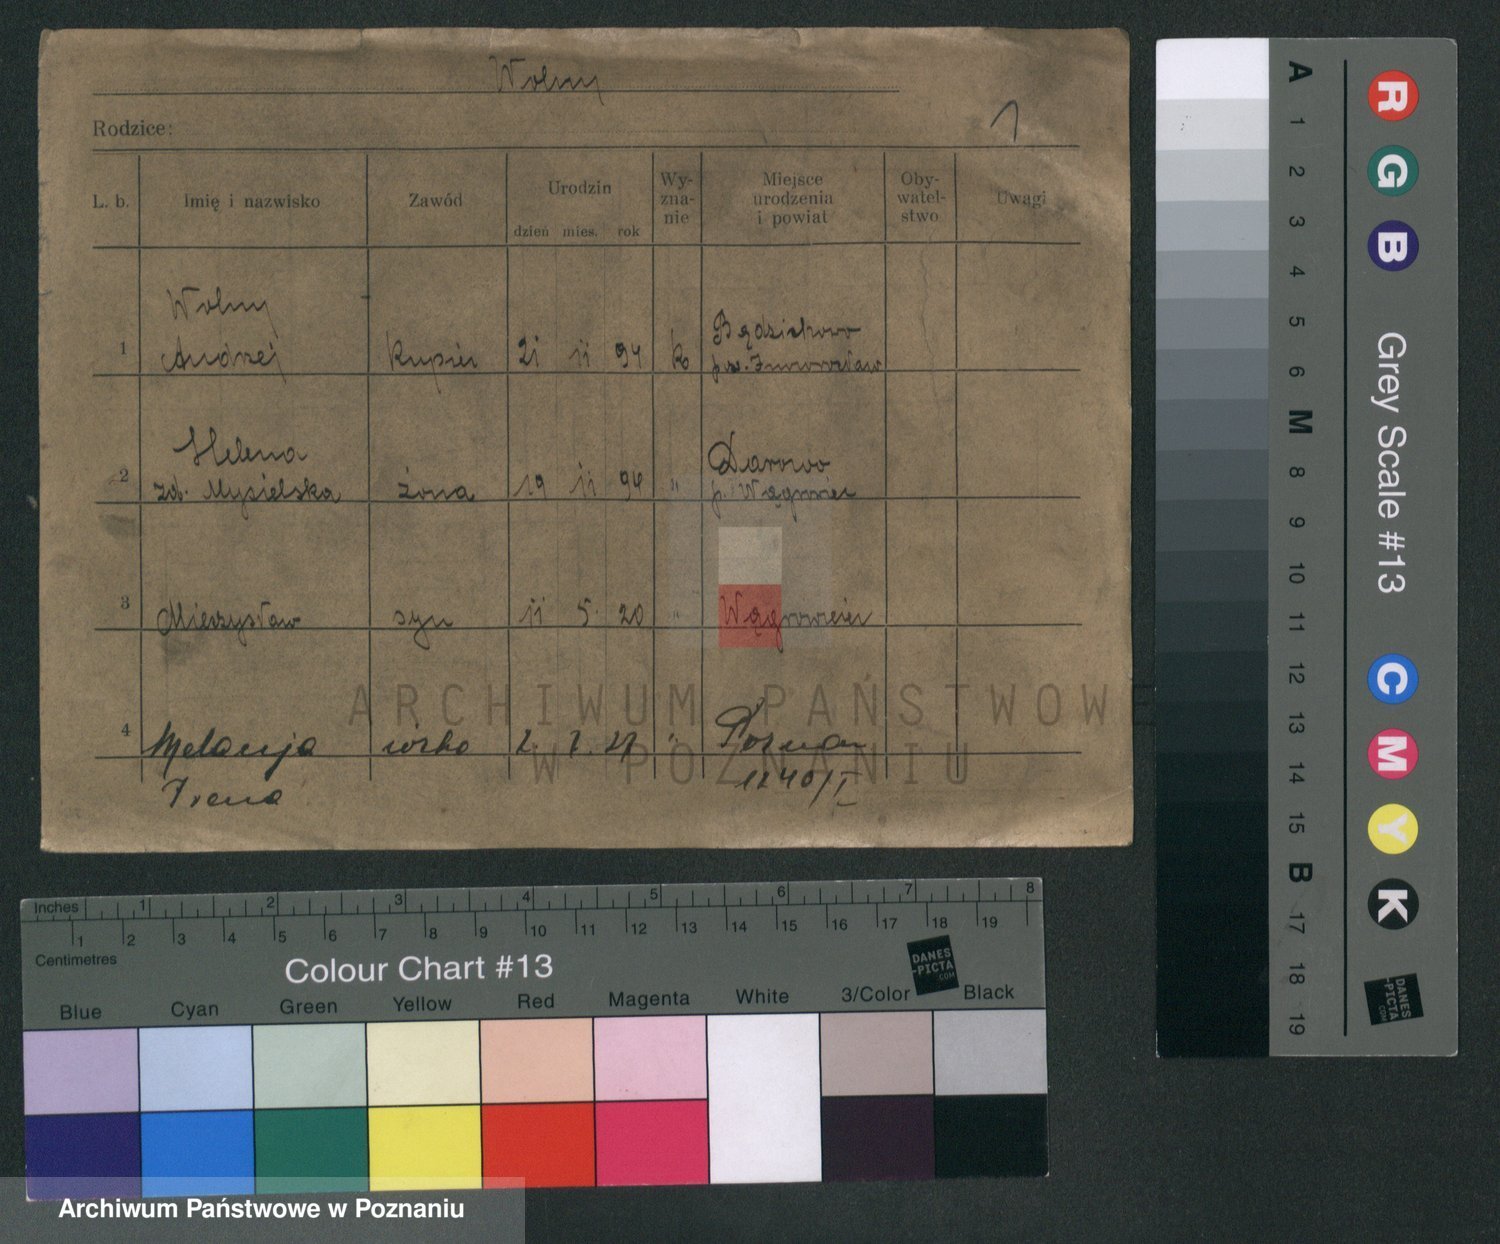 Wolny
Rodzice:
L. b. Imię i nazwisko Zawód Urodzin dzień mies. rok Wy-zna-nie Miejsce urodzenia i powiat Oby-watel-stwo Uwagi
Wolny
1 Andrzej kupiec 21 11 94 k
pw. Inowrocław
Helena
2 zd. Mysielska żona 19 11 94 "
p. Wągrowiec
3 Mieczysław syn 11 5 20 " Wągrowiec
4 Melanja córka 2. 7. 27 " Poznań
Irena 1240/I
ARCHIWUM PAŃSTWOWE
W POZNANIU
Inches 1 2 3 4 5 6 7 8
1 2 3 4 5 6 7 8 9 10 11 12 13 14 15 16 17 18 19
Centimetres
Colour Chart #13
DANES
-PICTA
.COM
Blue Cyan Green Yellow Red Magenta White 3/Color Black
Archiwum Państwowe w Poznaniu
A 1 2 3 4 5 6 M 8 9 10 11 12 13 14 15 B 17 18 19
R G B
Grey Scale #13
C M Y K
DANES
-PICTA
.COM